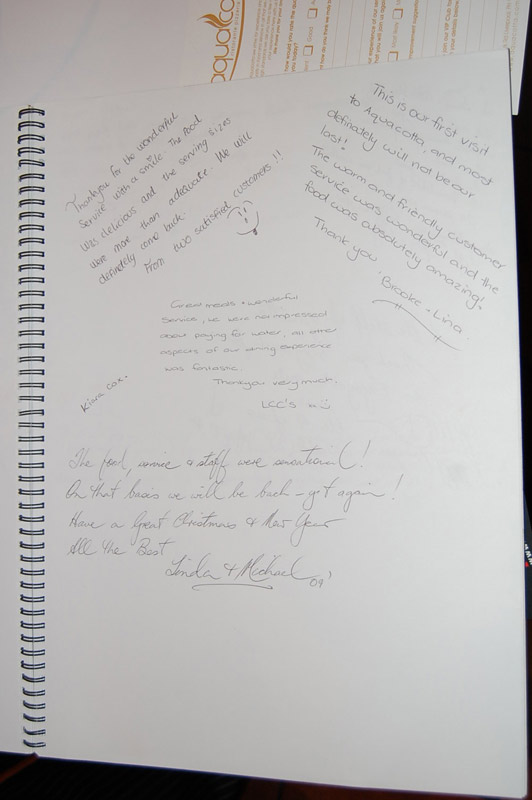 aquaco
Thankyou for the wonderful
service with a smile. The food
was delicious and the serving sizes
were more than adequate. We will
definately come back.
From two satisfied customers!!
This is our first visit
to Aquacotta, and most
definately will not be our
last!
The warm and friendly customer
service was wonderful and the
food was absolutely amazing!
Thank you
Brooke + Lina.
Great meals + wonderful
Service, we were not impressed
about paying for water, all other
aspects of our dining experience
was fantastic.
Thankyou very much.
LCC'S
Kiara Cox.
The food, service & staff were sensational!
On that basis we will be back - yet again!
Have a Great Christmas & New Year
All the Best
Linda & Michael 09'